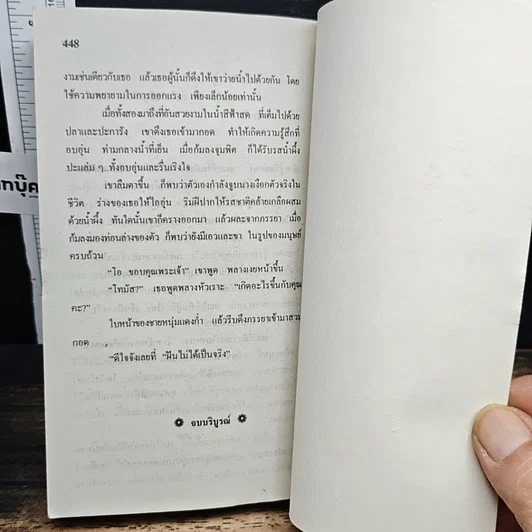 448
งามเช่นเดียวกับเธอ แล้วเธอผู้นั้นก็ดึงให้เขาว่ายน้ำไปด้วยกัน โดย
ใช้ความพยายามในการออกแรง เพียงเล็กน้อยเท่านั้น
เมื่อทั้งสองมาถึงที่อันสวยงามในน้ำสีฟ้าสด ที่เต็มไปด้วย
ปลาและปะการัง เขาดึงเธอเข้ามากอด ทำให้เกิดความรู้สึกที่
อบอุ่น ท่ามกลางน้ำที่เย็น เมื่อก้มลงจุมพิต ก็ได้รับรสน้ำผึ้ง
ปะแล่ม ๆ ทั้งอบอุ่นและรื่นเริงใจ
เขาลืมตาขึ้น ก็พบว่าตัวเองกำลังจูบนางเงือกตัวจริงใน
ชีวิต ร่างของเธอให้ไออุ่น ริมฝีปากให้รสชาติคล้ายเกลือผสม
ด้วยน้ำผึ้ง ทันใดนั้นเขาก็ครางออกมา แล้วผละจากภรรยา เมื่อ
ก้มลงมองท่อนล่างของตัว ก็พบว่ายังมีเอวและขา ในรูปของมนุษย์
ครบถ้วน
“โอ ขอบคุณพระเจ้า” เขาพูด พลางเงยหน้าขึ้น
“โทมัส?” เธอพูดพลางหัวเราะ “เกิดอะไรขึ้นกับคุณ
คะ?”
ใบหน้าของชายหนุ่มแดงก่ำ แล้วรีบดึงภรรยาเข้ามาสวม
กอด
“ดีใจจังเลยที่ “ฝันไม่ได้เป็นจริง”
จบบริบูรณ์